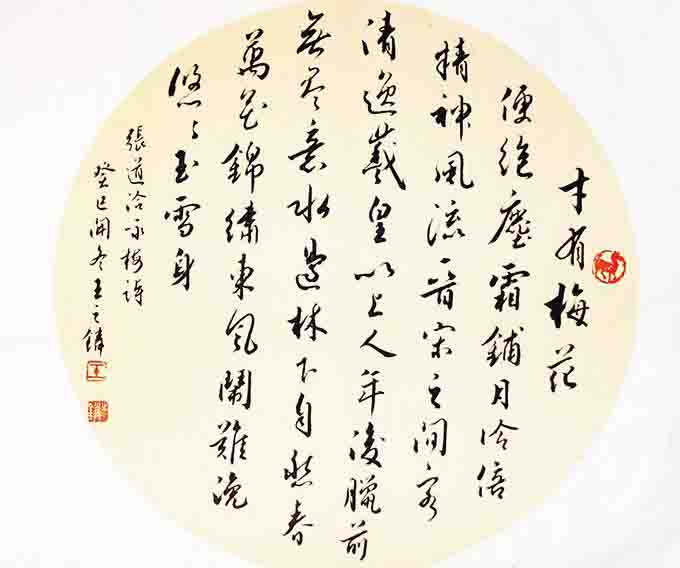 才有梅花
便絶塵霜鋪月冷倍
精神風流晉宋之间客
清逸羲皇以上人年後臘前
無尽意水邊林下自然春
萬花錦繡東風鬧難浼
悠々玉雪身
張道洽咏梅詩
癸巳開冬王之鏻